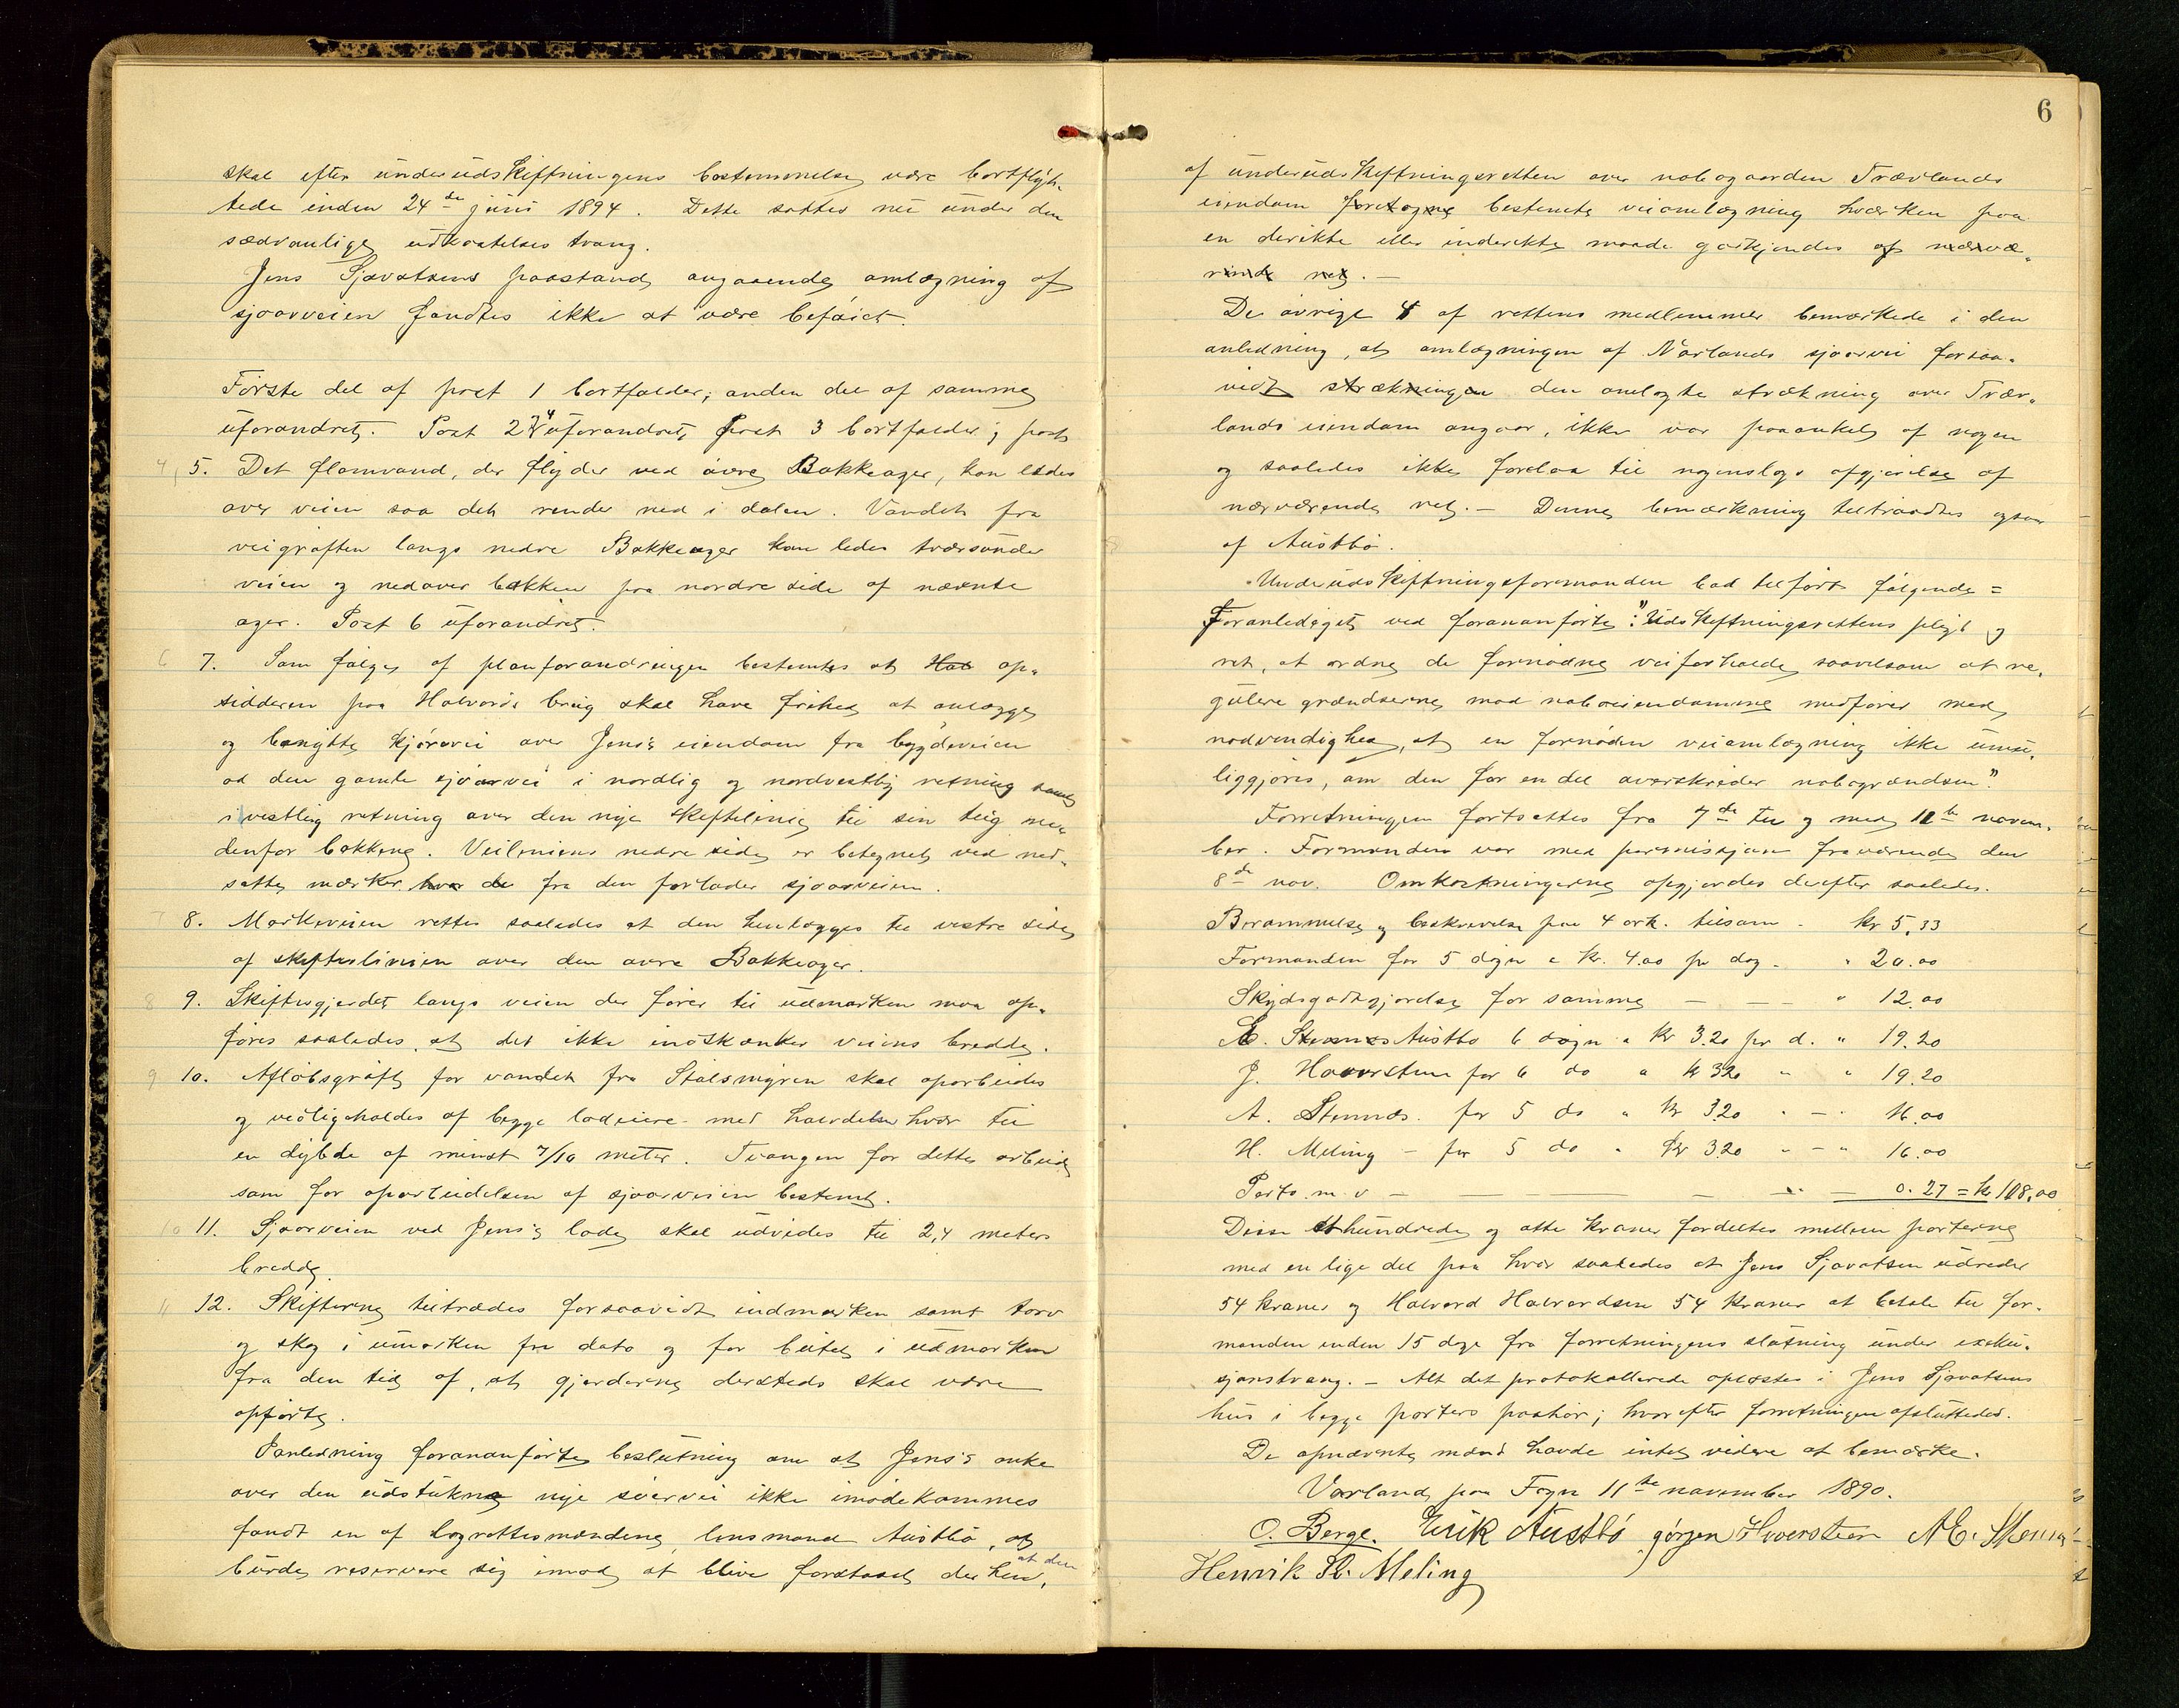 skal efter underudskiftningens bestemmelse være bortflyt-
tede inden 24de juni 1894. Dette sattes nu under den
sædvanlige udkastelses tvang.
Jens Sjovatsens paastand angaaende omlægning af
sjoarveien fandtes ikke at være beføiet.
Første del af post 1 bortfalder; anden del af samme
uforandret. Post 2 4 uforandret, Post 3 bortfalder; post
4, 5. Det flomvand, der flyder ved øvre Bakkeager, kan ledes
over veien saa det render ned i dalen. Vandet fra
veigrøften langs nedre Bakkeager kan ledes tværsunder
veien og nedover bakken paa nordre side af nævnte
ager. Post 6 uforandret.
6 7. Som følge af planforandringen bestemtes at Hal op-
sidderen paa Halvords brug skal have frihed at anlægge
og benytte kjørevei over Jens's eiendom fra bygdeveien
ad den gamle sjoarvei i nordlig og nordvestlig retning samt
i vestlig retning over den nye skiftelinie til sin teig ne-
denfor bakkene. Veiliniens nedre side er betegnet ved ned-
satte mærker hvor de fra den forlader sjoarveien.
7 8. Markeveien rettes saaledes at den henlægges til vestre side
af skifteslinien over den øvre Bakkeager.
8 9. Skiftesgjerdet langs veien der fører til udmarken maa op-
føres saaledes, at det ikke indskrænker veiens bredde.
9 10. Afløbsgrøft for vandet fra Stølsmyren skal oparbeides
og vedligeholdes af begge lodeiere med halvdelen hver til
en dybde af mindst 7/10 meter. Tvangen for dette arbeide
som for oparbeidelsen af sjoarveien bestemt.
10 11. Sjoarveien ved Jens's lade skal udvides til 2,4 meters
bredde.
11 12. Skifterne tiltrædes forsaavidt indmarken samt torv
og skog i umarken fra dato og for beitet i udmarken
fra den tid af, at gjerderne dersteds skal være
opførte.
I anledning forananførte beslutning om at Jens's anke
over den udstukne nye sjoarvei ikke imødekommes
fandt en af lagrettesmændene, lensmand Austbø, at
burde reservere sig imod at blive forstaaet derhen, at den
6
af underudskiftningsretten over nabogaarden Trævlands
eiendom foretagne bestemte veiomlægning hværken paa
en direkte eller indirekte maade godkjendes af nærvæ-
rende ret. —
De øvrige 4 af rettens medlemmer bemærkede i den
anledning, at omlægningen af Varlands sjoarvei forsaa-
vidt strækningen den omlagte strækning over Træv-
lands eiendom angaar, ikke var paaanket af nogen
og saaledes ikke forelaa til nogenslags afgjørelse af
nærværende ret. — Denne bemærkning tiltraadtes ogsaa
af Austbø.
Underudskiftningsformanden bad tilført følgende =
Foranlediget ved forananførte: "Udskiftningsrettens pligt og
ret, at ordne de fornødne veiforholde, saavelsom at re-
gulere grændserne mod naboeiendommene medfører med
nødvendighed, at en fornøden veiomlægning ikke umu-
liggjøres, om den for en del overskrider nabogrændsen."
Forretningen fortsattes fra 7de til og med 11te novem-
ber. Formanden var med permisjon fraværende den
8de nov. Omkostningerne opgjordes derefter saaledes.
Berammelse og beskrivelse paa 4 ark. tilsam - kr 5,33
Formanden for 5 døgn a kr. 4.00 pr dag - " 20.00
Skydsgodtgjørelse for samme — — — " 12.00
E. Austbø 6 døgn a kr 3.20 pr d. " 19.20
J. Haverstein for 6 do a kr 3.20 " " 19.20
A. Stennes. for 5 do " kr 3.20 " — " 16.00
H. Meling — for 5 do " kr 3.20 " — " 16.00
Porto m. v — — — — " — 0.27 = kr 108,00
Disse et hundrede og otte kroner fordeltes mellem parterne
med en lige del paa hver saaledes at Jens Sjovatsen udreder
54 kroner og Halvord Halvordsen 54 kroner at betale til for-
manden inden 15 dage fra forretningens slutning under exeku-
sjonstvang. — Alt det protokollerede oplæstes i Jens Sjovatsens
hus i begge parters paahør; hvorefter forretningen afsluttedes.
De opnævnte mænd havde intet videre at bemærke.
Varland paa Fogn 11te november 1890.
O. Berge. Erik Austbø Jørgen Hverstein A E. Stennes
Henrik H. Meling